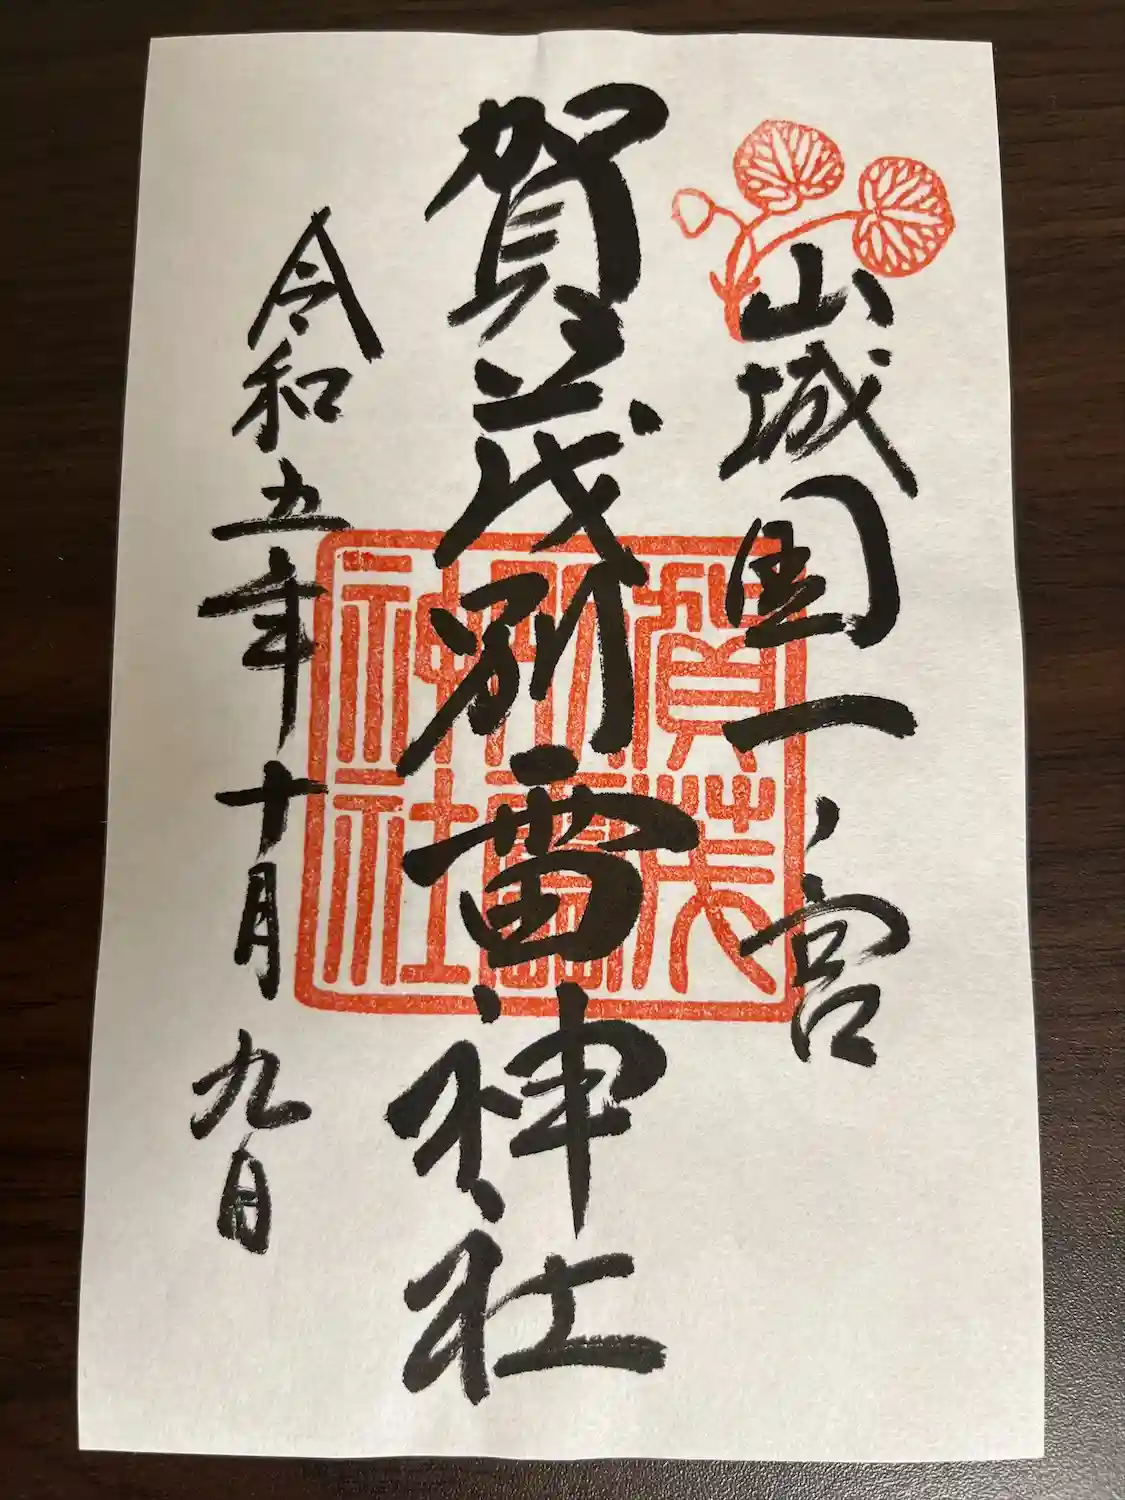 山城国一ノ宮
賀茂別雷神社
賀茂別雷神社
令和五年十月九日